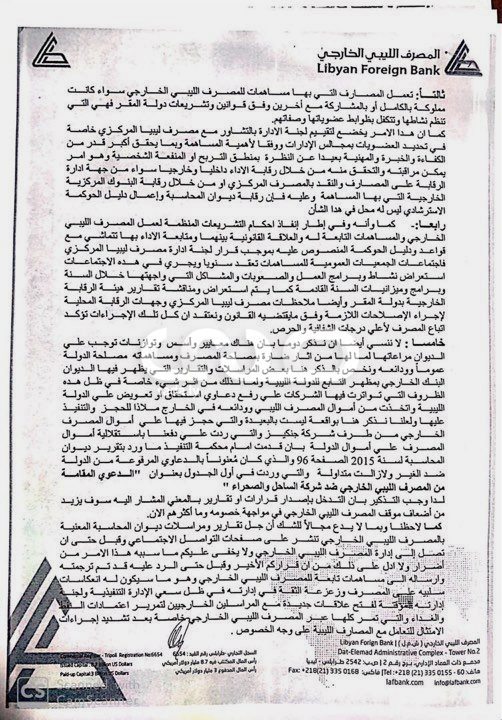 المصرف الليبي الخارجي
Libyan Foreign Bank
ثالثاً: تعمل المصارف التي بها مساهمات للمصرف الليبي الخارجي سواء كانت
مملوكة بالكامل أو بالمشاركة مع أخرين وفق قوانين وتشريعات دولة المقر فهي التي
تنظم نشاطها وتتكفل بظوابط عضوياتها وصفاتهم.
كما ان هذا الامر يخضع لتقييم لجنة الادارة بالتشاور مع مصرف ليبيا المركزي خاصة
في تحديد العضويات بمجالس الإدارات ووفقا لأهمية المساهمة وبما يحقق أكبر قدر من
الكفاءة والخبرة والمهنية بعيدا عن النظرة بمنطق التربح او المنفعة الشخصية وهو امر
يمكن مراقبته والتحقق منه من خلال رقابة الاداء داخليا وخارجيا سواء من جهة ادارة
الرقابة على المصارف والنقد بالمصرف المركزي او من خلال رقابة البنوك المركزية
الخارجية التي بها المساهمة وعليه فإن رقابة ديوان المحاسبة وإعمال دليل الحوكمة
الاسترشادي ليس له محل في هذا الشأن
رابعا:- كما وأنه وفي إطار إنفاذ احكام التشريعات المنظمة لعمل المصرف الليبي
الخارجي والمساهمات التابعة له والعلاقة القانونية بينهما ومتابعة الاداء بها تتماشي مع
قواعد ودليل الحوكمة المنصوص عليه بموجب قرار لجنة ادارة مصرف ليبيا المركزي
فاجتماعات الجمعيات العمومية المساهمات تعقد سنويا ويجري في هذه الاجتماعات
استعراض نشاط وبرامج العمل والصعوبات والمشاكل التي واجهتها خلال السنة
وبرامج وميزانيات السنة القادمة كما يتم استعراض ومناقشة تقارير هيئة الرقابة
الخارجية بدولة المقر وأيضا ملاحظات مصرف ليبيا المركزي وجهات الرقابة المحلية
لإجراء الإصلاحات اللازمة وفق مايقتضيه القانون ونعتقد ان كل تلك الإجراءات تؤكد
اتباع المصرف لأعلي درجات الشفافية والحرص.
خامسا: لا ننسي أيضا ان نذكر دوما بان هناك معايير وأسس وتوازنات توجب على
الديوان مراعاتها لما لها من اثار ضارة بمصلحة المصرف ومساهماته ومصلحة الدولة
عموما وودائعه ونخص بالذكر هنا بعض المراسلات والتقارير التي يظهر فيها الديوان
البنك الخارجي بمظهر التابع للدولة الليبية ولما لذلك من اثر سيء خاصة في ظل هذه
الظروف التي تواترت فيها الشركات على رفع دعاوي استحقاق أو تعويض على الدولة
الليبية واتخذت من أموال المصرف الليبي وودائعه في الخارج ملاذا للحجز والتنفيذ
عليها ولعلنا نذكر هنا بواقعة ليست بالبعيدة والتي حجز فيها على أموال المصرف
الخارجي من طرف شركة جنكيز والتي ردت على دفعنا باستقلالية أموال
المصرف على أموال الدولة بان قدمت امام محكمة التنفيذ ما ورد بتقرير ديوان
المحاسبة لسنة 2015 الصفحة 96 والذي كان معنوناً بالدعاوي المرفوعة من الدولة
ضد الغير ولازالت متداولة والتي وردت في أول الجدول بعنوان " الدعوي المقامة
من المصرف الليبي الخارجي ضد شركة الساحل والصحراء "
لذا وجب التذكير بان التدخل بإصدار قرارات او تقارير بالمعني المشار اليه سوف يزيد
من اضعاف موقف المصرف الليبي الخارجي في مواجهة خصومه وما أكثرهم الان.
كما لاحظنا وبما لا يدع مجالاً للشك أن جل تقارير ومراسلات ديوان المحاسبة المعنية
بالمصرف الليبي الخارجي تنشر على صفحات التواصل الاجتماعي وقبل حتى ان
تصل إلى إدارة المصرف الليبي الخارجي ولا يخفى عليكم ما سببه هذا الامر من
أضرار ولا ادل على ذلك من ان قراركم الأخير وقبل حتى الرد عليه قد تم ترجمته
وارساله الى مساهمات تابعة للمصرف الليبي الخارجي وهو ما سيكون له انعكاسات
سلبية على المصرف وزعزعة الثقة في إدارته في ظل سعي الإدارة التنفيذية ولجنة
إدارته لفتح علاقات جديدة مع المراسلين الخارجيين لتمرير اعتمادات النفط
والغذاء والتي تمر كلها عبر المصرف الليبي الخارجي خاصة بعد تشديد إجراءات
الامتثال للتعامل مع المصارف الليبية على وجه الخصوص.
Tripoli Registration No:6654
السجل التجاري طرابلس رقم القيد: 6654
US Dollars
رأس المال المكتتب فيه 8.7 مليار دولار أمريكي
Paid-up Capital:3 Billion US Dollars
رأس المال المدفوع 3 مليار دولار أمريكي
المصرف الليبي الخارجي (ش.م.ل) Libyan Foreign Bank
Dat-Elemad Administrative Complex - Tower No.2
مجمع ذات العماد الإداري برج رقم 2 | ص.ب 2542 طرابلس - ليبيا
Fax: +218(21) 335 0168 - هاتف: 60 - 0155 335 (21)218+ :Tel
lafbank.com | info@lafbank.com
CS